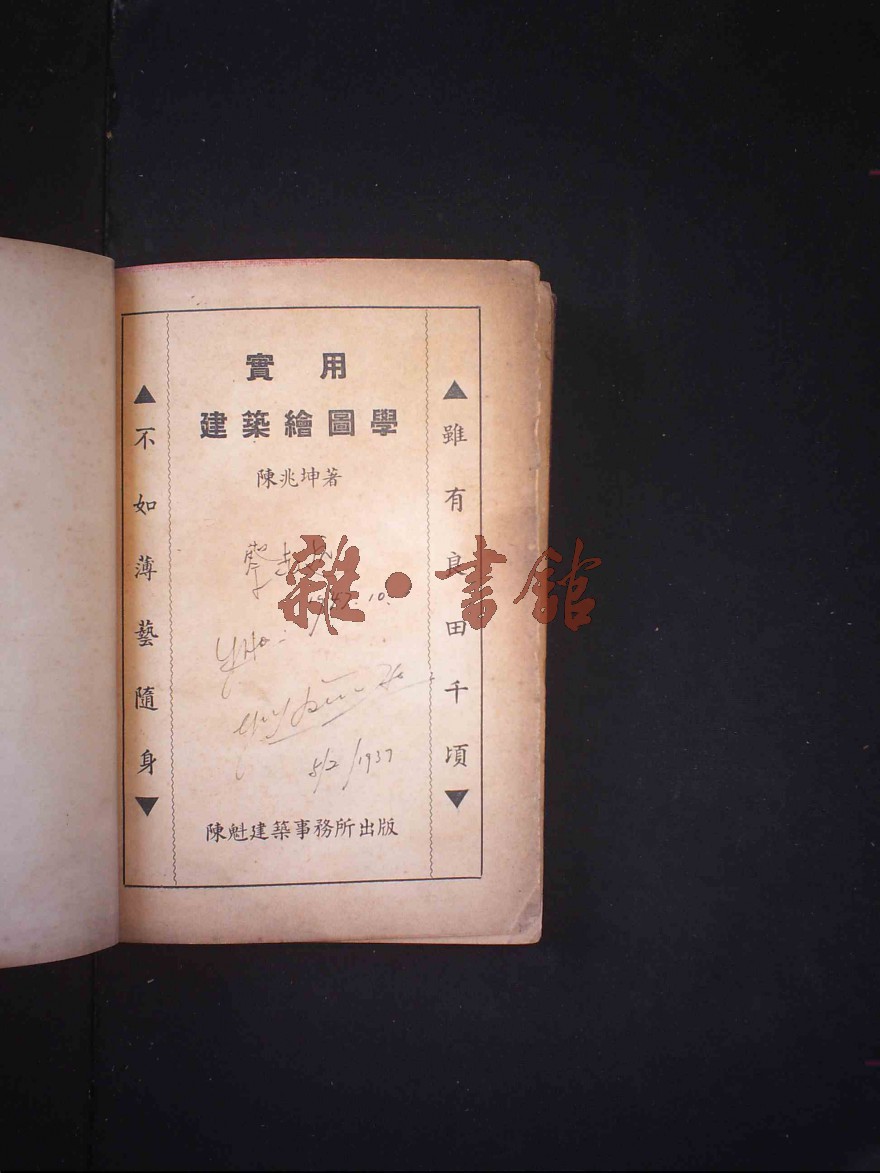 實用
建築繪圖學
陳兆坤著
▲雖有良田千頃▼
▲不如薄藝隨身▼
雜·書館
5/2/1937
陳魁建築事務所出版